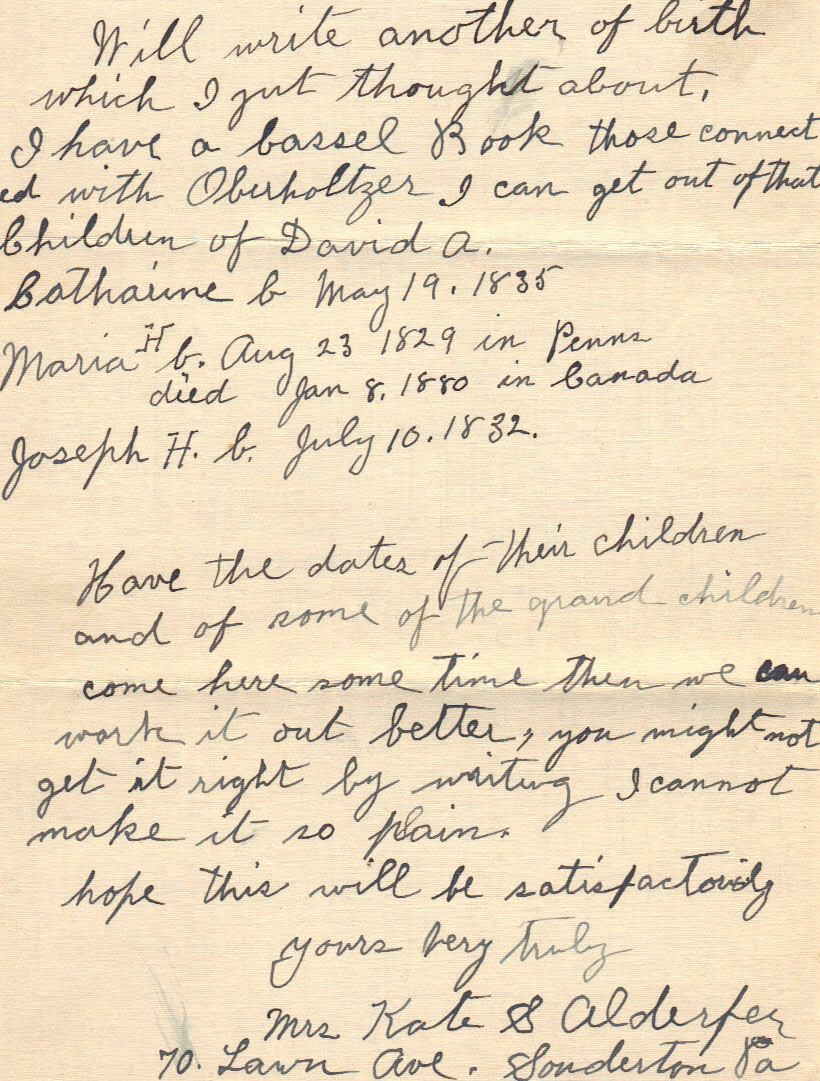 Will write another of birth
which I just thought about,
I have a Cassel Book those connect
ed with Oberholtzer I can get out of that
Children of David A.
Catharine b May 19. 1835
Maria H b. Aug 23 1829 in Penna
died Jan 8, 1880 in Canada
Joseph H. b. July 10. 1832.
Have the dates of their children
and of some of the grand children
come here some time then we can
work it out better, you might not
get it right by writing I cannot
make it so plain.
hope this will be satisfactorily
yours very truly
Mrs Kate S Alderfer
70. Lawn Ave. Souderton Pa